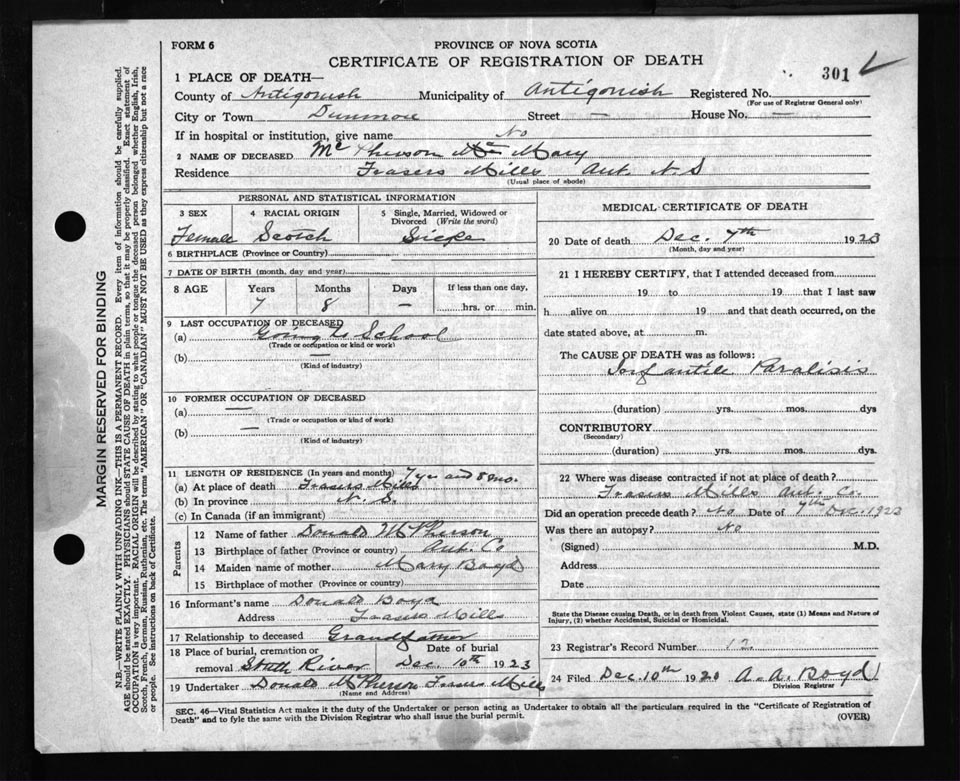 FORM 6
PROVINCE OF NOVA SCOTIA
CERTIFICATE OF REGISTRATION OF DEATH
301
1 PLACE OF DEATH—
County of Antigonish Municipality of Antigonish Registered No.
(For use of Registrar General only)
City or Town Dunmore Street — House No. —
If in hospital or institution, give name No
2 NAME OF DECEASED McPherson Mary
Residence Frasers Mills Ant. N. S
(Usual place of abode)
PERSONAL AND STATISTICAL INFORMATION
3 SEX 4 RACIAL ORIGIN 5 Single, Married, Widowed or Divorced (Write the word)
Female Scotch
6 BIRTHPLACE (Province or Country)
7 DATE OF BIRTH (month, day and year)
8 AGE Years Months Days If less than one day,
7 8 — hrs. or min.
9 LAST OCCUPATION OF DECEASED
(a) Going to School
(Trade or occupation or kind or work)
(b) —
(Kind of industry)
10 FORMER OCCUPATION OF DECEASED
(a) —
(Trade or occupation or kind of work)
(b) —
(Kind of industry)
11 LENGTH OF RESIDENCE (In years and months) 7 yr and 8 mo.
(a) At place of death Frasers Mills
(b) In province N. S.
(c) In Canada (if an immigrant)
Parents
12 Name of father Donald McPherson
13 Birthplace of father (Province or country) Ant. Co
14 Maiden name of mother Mary Boyd
15 Birthplace of mother (Province or country)
16 Informant's name Donald Boyd
Address Frasers Mills
17 Relationship to deceased Grandfather
18 Place of burial, cremation or removal South River Date of burial Dec. 10th 1923
19 Undertaker Donald McPherson Frasers Mills
(Name and Address)
MEDICAL CERTIFICATE OF DEATH
20 Date of death Dec. 7th 1923
(Month, day and year)
21 I HEREBY CERTIFY, that I attended deceased from
19 to 19 that I last saw
h alive on 19 and that death occurred, on the
date stated above, at m.
The CAUSE OF DEATH was as follows:
Infantile Paralisis
(duration) yrs. mos. dys
CONTRIBUTORY
(Secondary)
(duration) yrs. mos. dys.
22 Where was disease contracted if not at place of death?
Frasers Mills Ant. Co.
Did an operation precede death? No Date of 7th Dec. 1923
Was there an autopsy? No
(Signed) M.D.
Address
Date
State the Disease causing Death, or in death from Violent Causes, state (1) Means and Nature of
Injury, (2) whether Accidental, Suicidal or Homicidal.
23 Registrar's Record Number 12
24 Filed Dec. 10th 1920 A. A. Boyd
Division Registrar
SEC. 46—Vital Statistics Act makes it the duty of the Undertaker or person acting as Undertaker to obtain all the particulars required in the "Certificate of Registration of
Death" and to fyle the same with the Division Registrar who shall issue the burial permit.
(OVER)
MARGIN RESERVED FOR BINDING
N.B.—WRITE PLAINLY WITH UNFADING INK—THIS IS A PERMANENT RECORD. Every item of information should be carefully supplied.
AGE should be stated EXACTLY. PHYSICIANS should STATE CAUSE OF DEATH in plain terms, so that it may be properly classified. Exact statement of
OCCUPATION is very important. RACIAL ORIGIN will be described by stating to what people or tongue the deceased person belonged whether English, Irish,
Scotch, French, German, Russian, Ruthenian, etc. The terms "AMERICAN" OR "CANADIAN" MUST NOT BE USED as they express citizenship but not a race
or people. See instructions on back of Certificate.